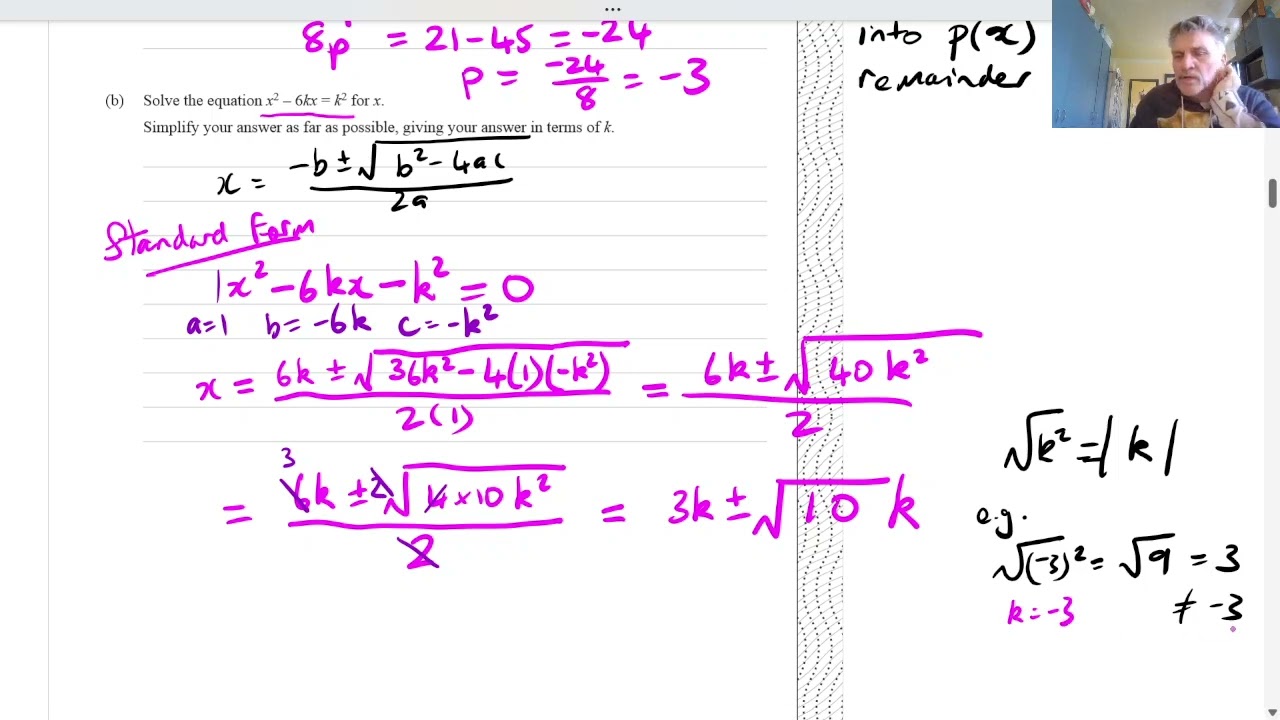 ...
8p = 21 - 45 = -24
p = -24/8 = -3
into p(x)
remainder
(b) Solve the equation x² – 6kx = k² for x.
Simplify your answer as far as possible, giving your answer in terms of k.
x = (-b ± √(b² - 4ac))/2a
Standard Form
1x² - 6kx - k² = 0
a=1 b= -6k c= -k²
x = (6k ± √(36k² - 4(1)(-k²)))/2(1) = (6k ± √(40k²))/2
= (6k ± 2√(4×10k²))/2 = 3k ± √10 k
3
√k² = |k|
e.g.
√(-3)² = √9 = 3
k = -3 ≠ -3